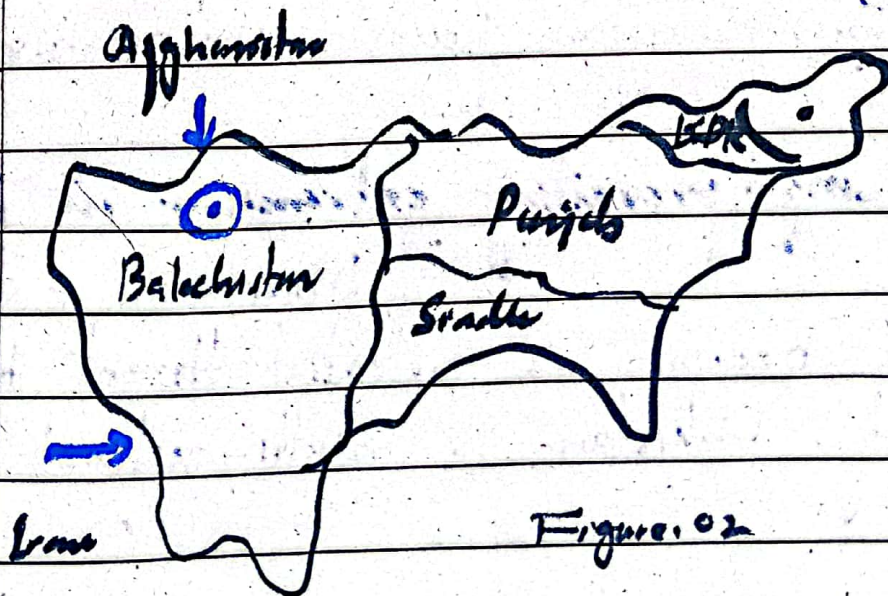 Afghanistan
KPK
Punjab
Balochistan
Sindh
Iran
Figure. 02